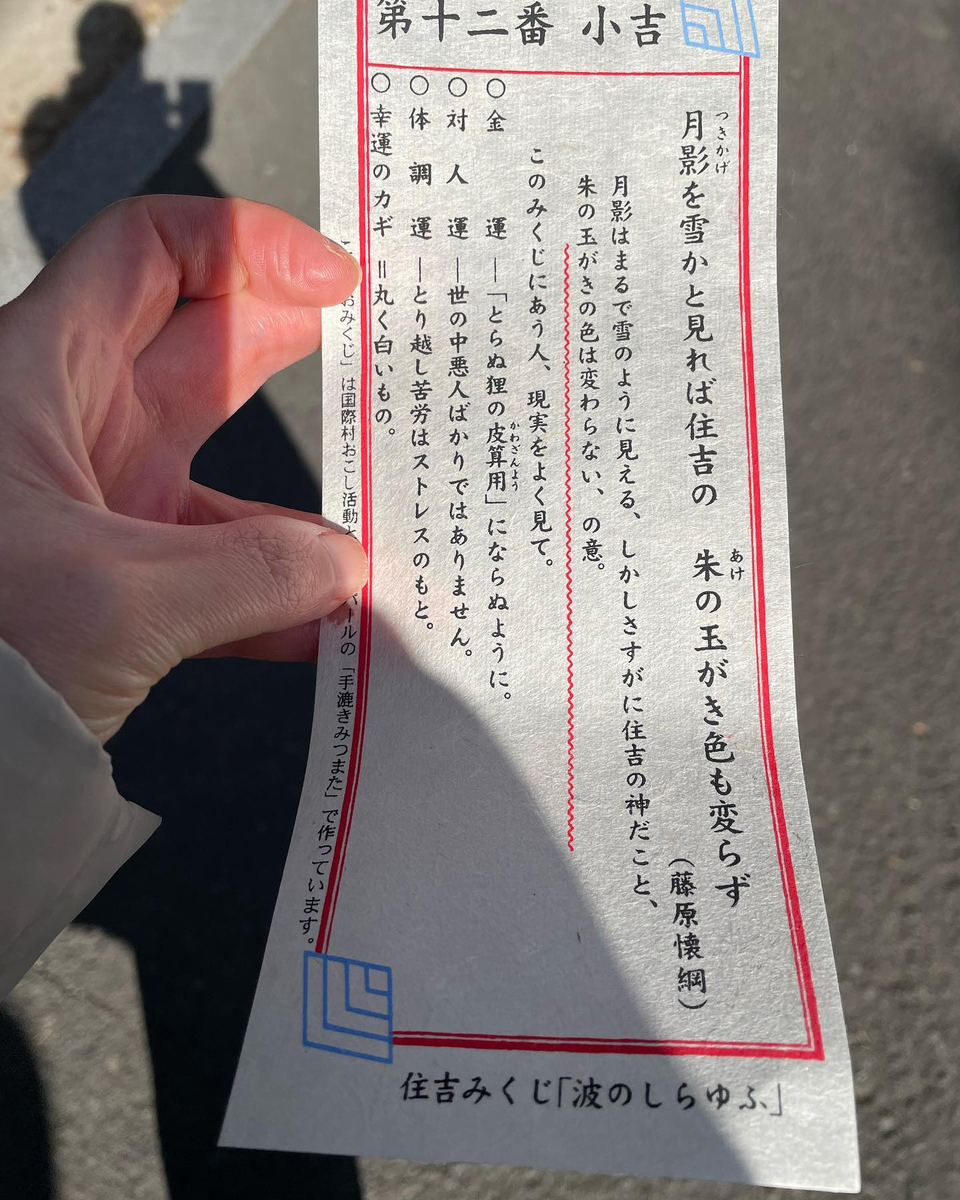 第十二番 小吉
月影を雪かと見れば住吉の 朱の玉がき色も変らず
つきかげ
あけ
(藤原懐綱)
月影はまるで雪のように見える、しかしさすがに住吉の神だこと、
朱の玉がきの色は変わらない、の意。
このみくじにあう人、現実をよく見て。
○金運―「とらぬ狸の皮算用」にならぬように。
かわざんよう
○対人運―世の中悪人ばかりではありません。
○体調運―とり越し苦労はストレスのもと。
○幸運のカギ=丸く白いもの。
おみくじ」は国際村おこし活動 パールの「手漉きみつまた」で作っています。
住吉みくじ「波のしらゆふ」